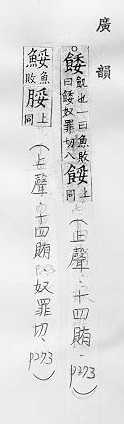 廣韻
○餧飢也一曰魚敗曰餧奴罪切八餒上同(上聲.十四賄.p273)
鮾魚敗脮上同(上聲.十四賄.奴罪切.p273)